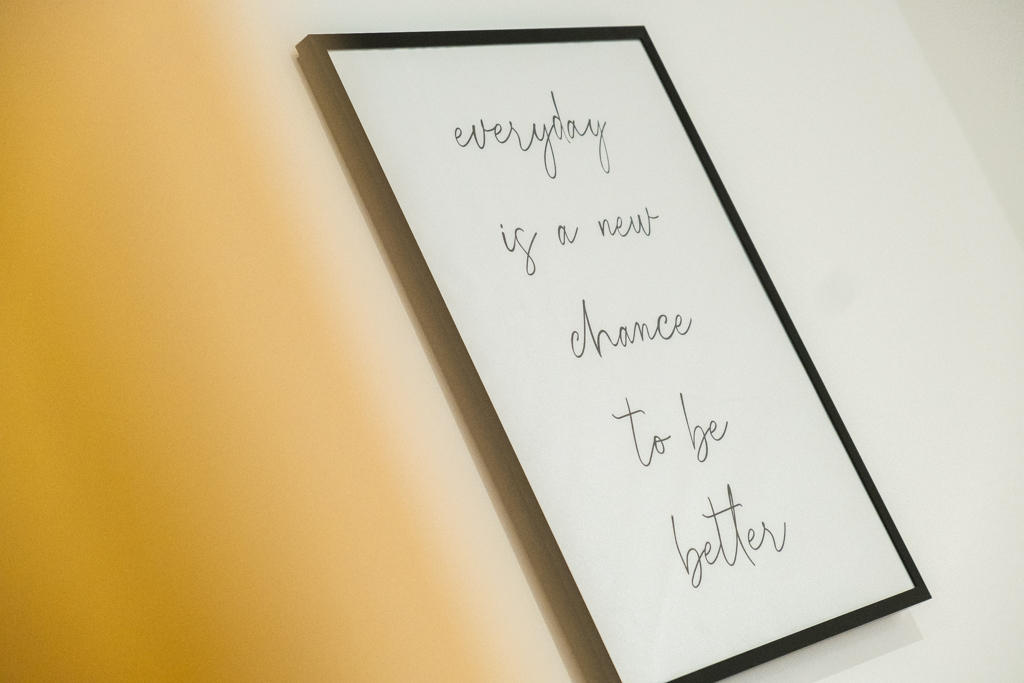 everyday
is a new
chance
to be
better